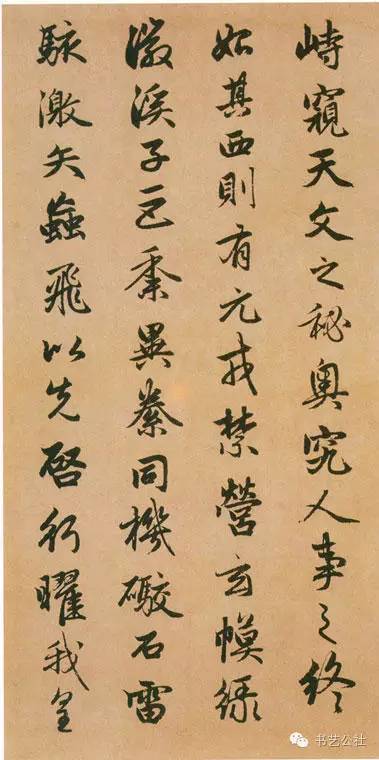 峙窺天文之秘奧究人事之終
始其西則有元戎禁營玄幙綠
徽溪子巨黍異絭同機礮石雷
駭激矢蝱飛以先啓行曜我皇
书艺公社